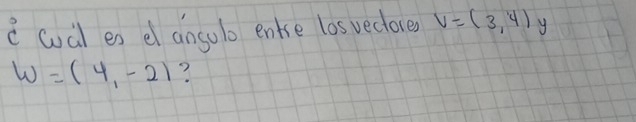 ¿ Cuál es el ángulo entre los vectores V=(3,4) y
W=(4,-2)?